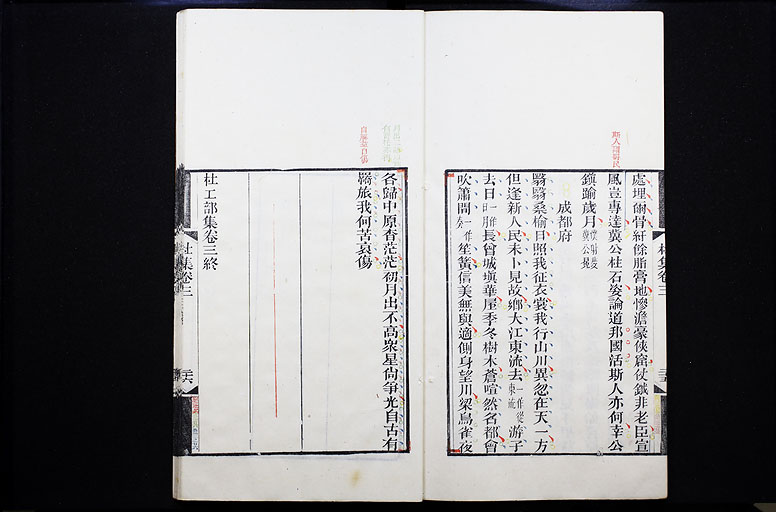 處埋幽骨紆餘脂膏地慘澹豪俠窟仗鉞非老臣宣
風豈專達冀公柱石姿論道邦國活斯人亦何幸公
鎮踰歲月僕射裴冀公冕
成都府
翳翳桑榆日照我征衣裳我行山川異忽在天一方
但逢新人民未卜見故鄉大江東流去一作從東流游子
去日一作日月長曾城塡華屋季冬樹木蒼喧然名都會
吹簫間一作奏笙簧信美無與適側身望川梁鳥雀夜
杜集卷三
各歸中原杳茫茫初月出不高衆星尙爭光自古有
羇旅我何苦哀傷
杜工部集卷三終
杜集卷三